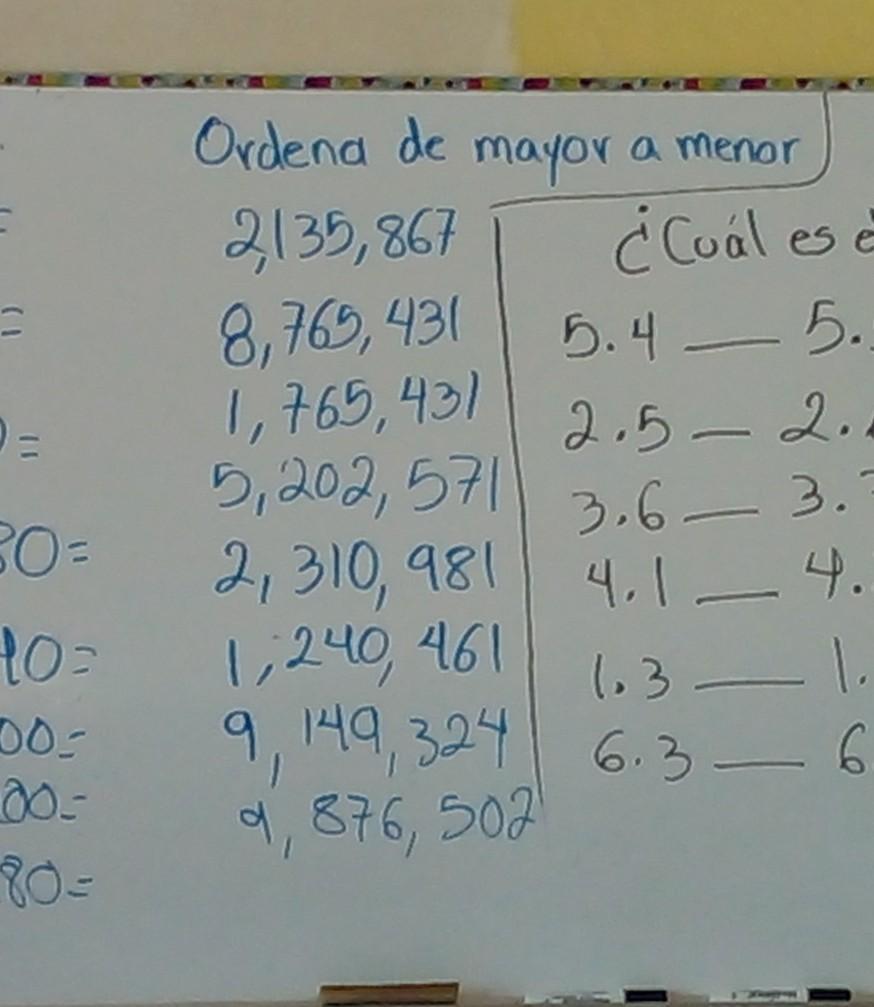 Ordena de mayor a menor
2,135,867
8,765,431
1,765,431
5,202,571
2,310,981
1,240,461
9,149,324
9,876,502
¿Cuál es
5.4 __ 5.
2.5 __ 2.
3.6 __ 3.
4.1 __ 4.
1.3 __ 1.
6.3 __ 6
=
=
=
80=
10=
00=
00=
80=